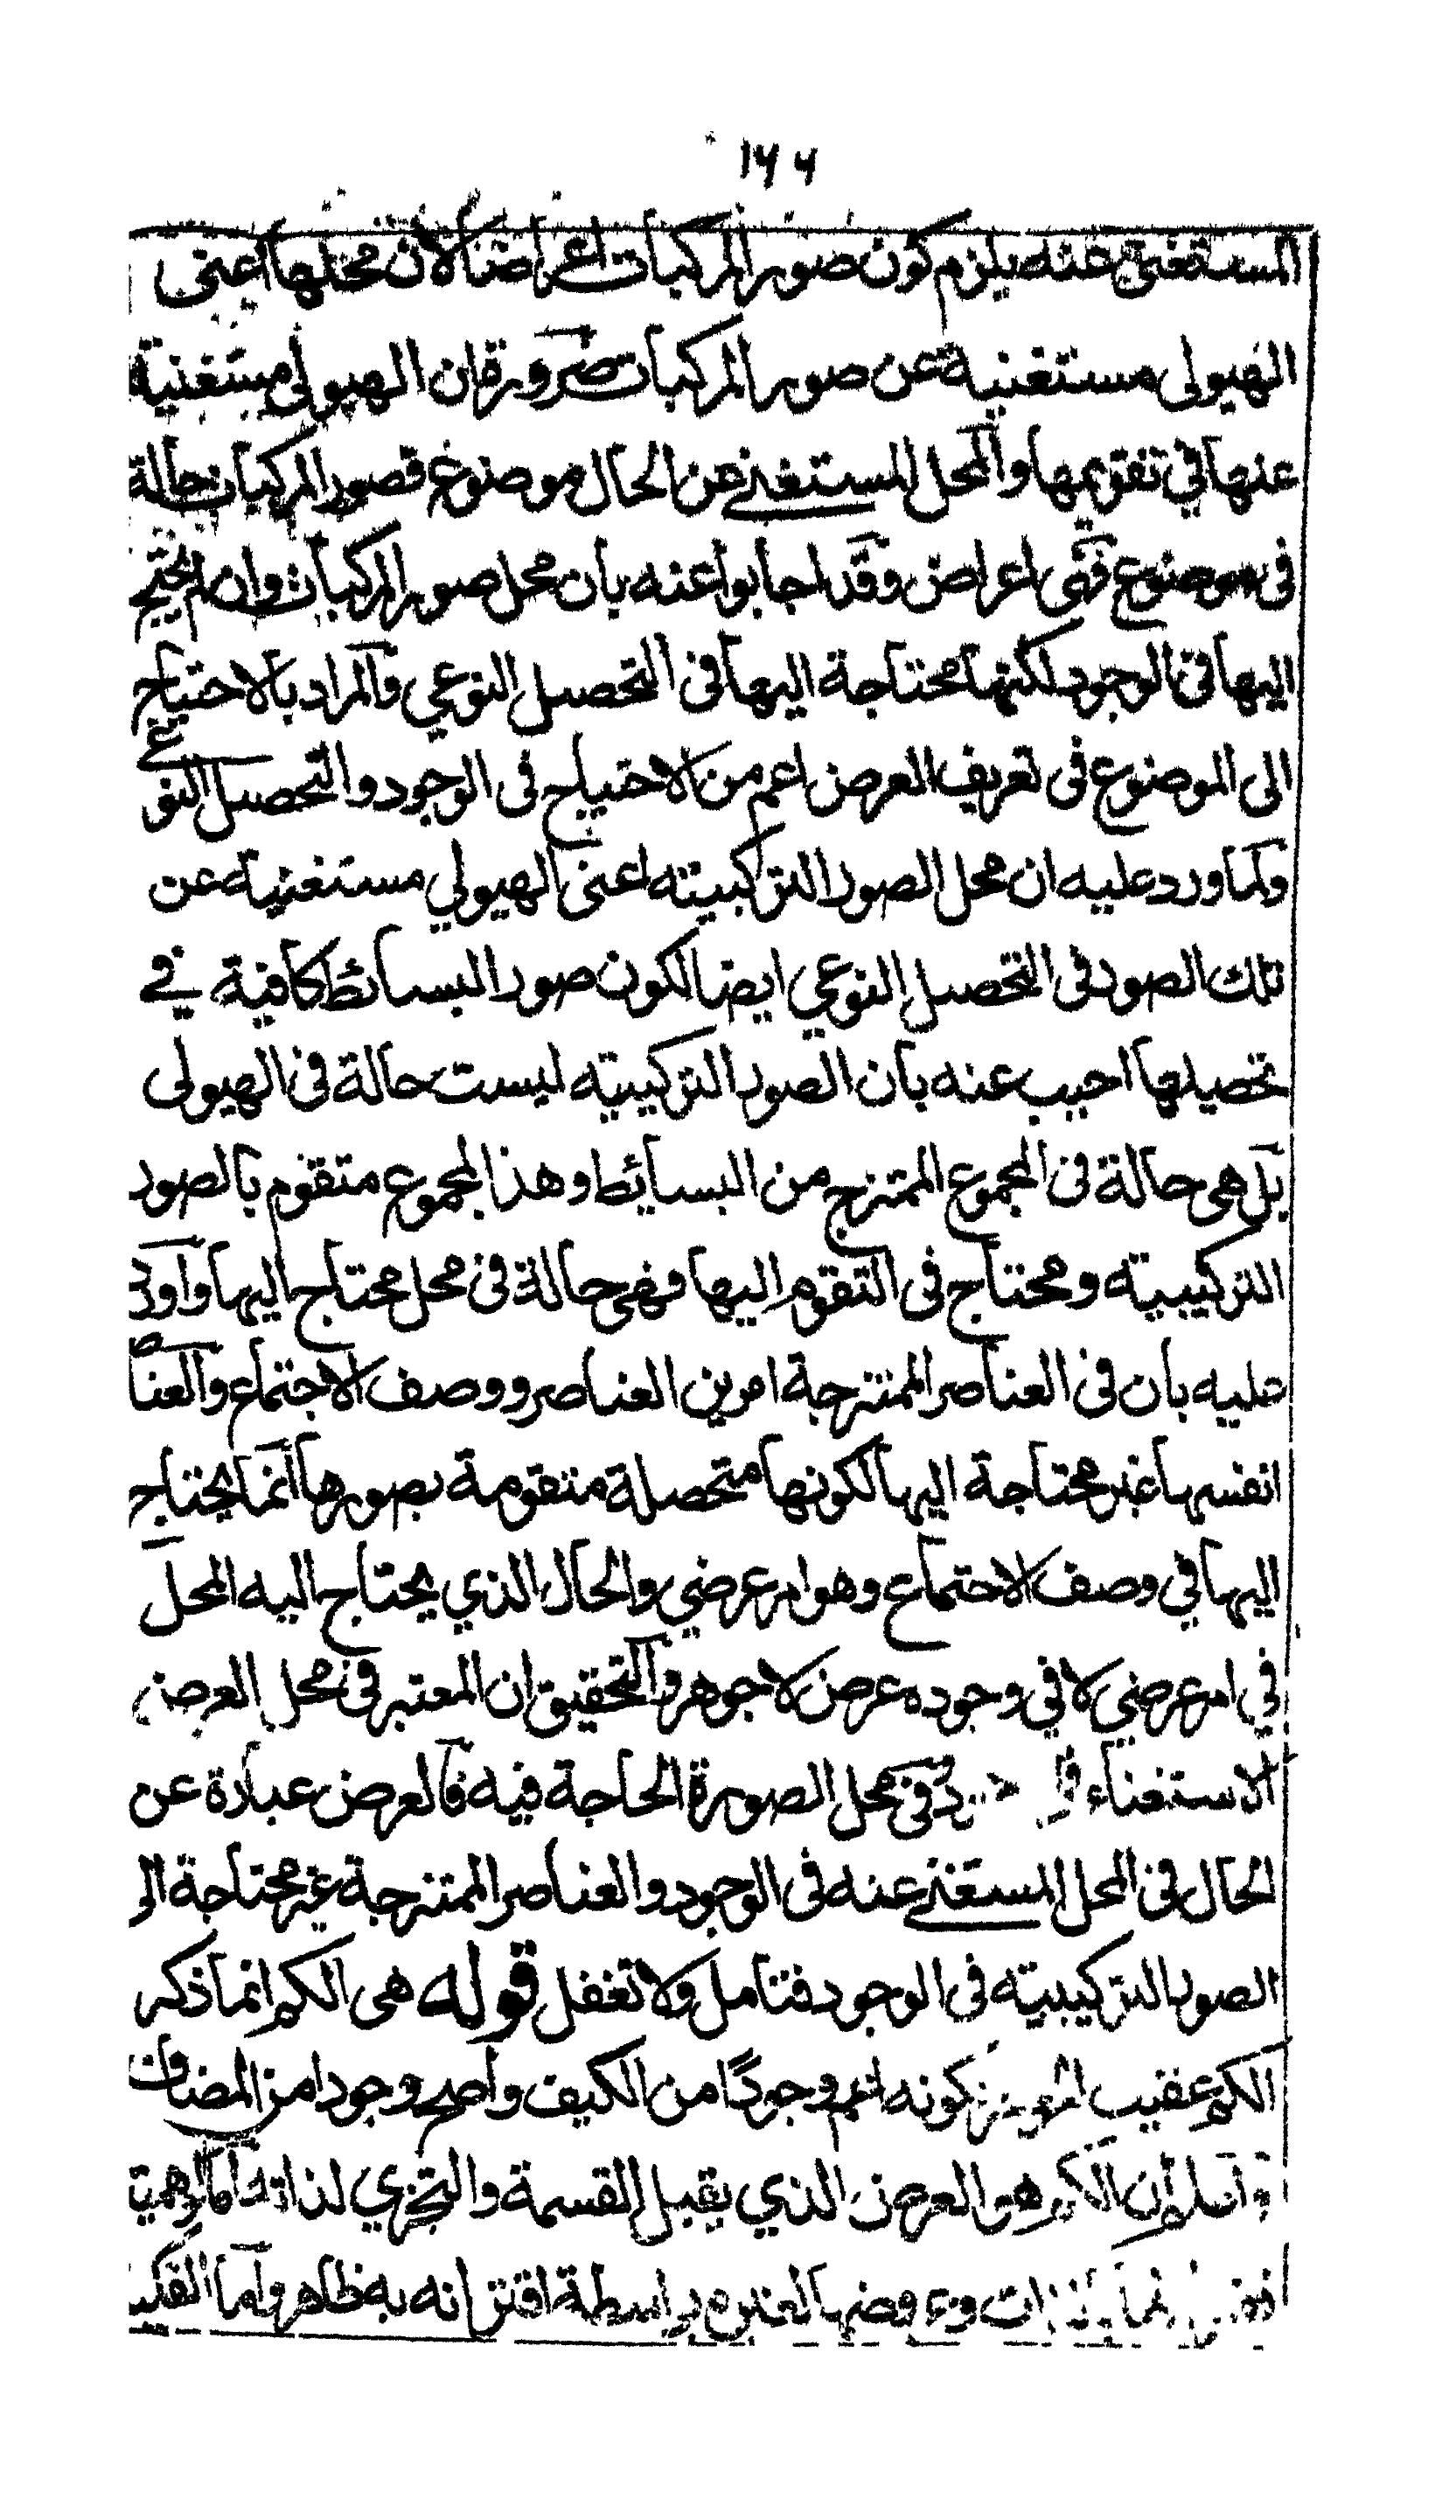 ١٧٦
المستغنى عنه يلزم كون صور المركبات اعراضا لان محلها اعنى
الهيولى مستغنية عن صور المركبات ضرورة ان الهيولى مستغنية
عنها في تقويمها والمحل المستغنى عن الحال موضوع فصور المركبات حالة
فى موضوع فهى اعراض وقد اجابوا عنه بان محل صور المركبات وان لم يحتج
اليها فى الوجود لكنها محتاجة اليها فى التحصل النوعي والمراد بالاحتياج
الى الموضوع فى تعريف العرض اعم من الاحتياج فى الوجود والتحصل النوعي
ولما ورد عليه ان محل الصور التركيبية اعنى الهيولي مستغنية عن
تلك الصور فى التحصل النوعي ايضا لكون صور البسائط كافية في
تحصيلها اجيب عنه بان الصور التركيبية ليست حالة فى الهيولى
بل هى حالة فى المجموع الممتزج من البسائط وهذا المجموع متقوم بالصور
التركيبية ومحتاج فى التقوم اليها فهى حالة فى محل محتاج اليها واورد
عليه بان فى العناصر الممتزجة امرين العناصر ووصف الاجتماع والعناصر
انفسها غير محتاجة اليها لكونها متحصلة متقومة بصورها انما يحتاج
اليها في وصف الاجتماع وهو امر عرضي والحال الذي يحتاج اليه المحل
في امر عرضي لا في وجوده عرض لا جوهر والتحقيق ان المعتبر فى محل العرض
الاستغناء فى محل الصورة الحاجة فيه فالعرض عبارة عن
الحال فى المحل المستغنى عنه فى الوجود والعناصر الممتزجة غير محتاجة الى
الصور التركيبية فى الوجود فتامل ولا تغفل قوله هى الكم انما ذكر
الكم عقيب الجوهر لكونه اعم وجودًا من الكيف واصح وجودا من المضاف
واعلم ان الكم هو العرض الذي يقبل القسمة والتجزي لذاته
وعروضها لغيره بواسطة اقترانه به ظاهر واما